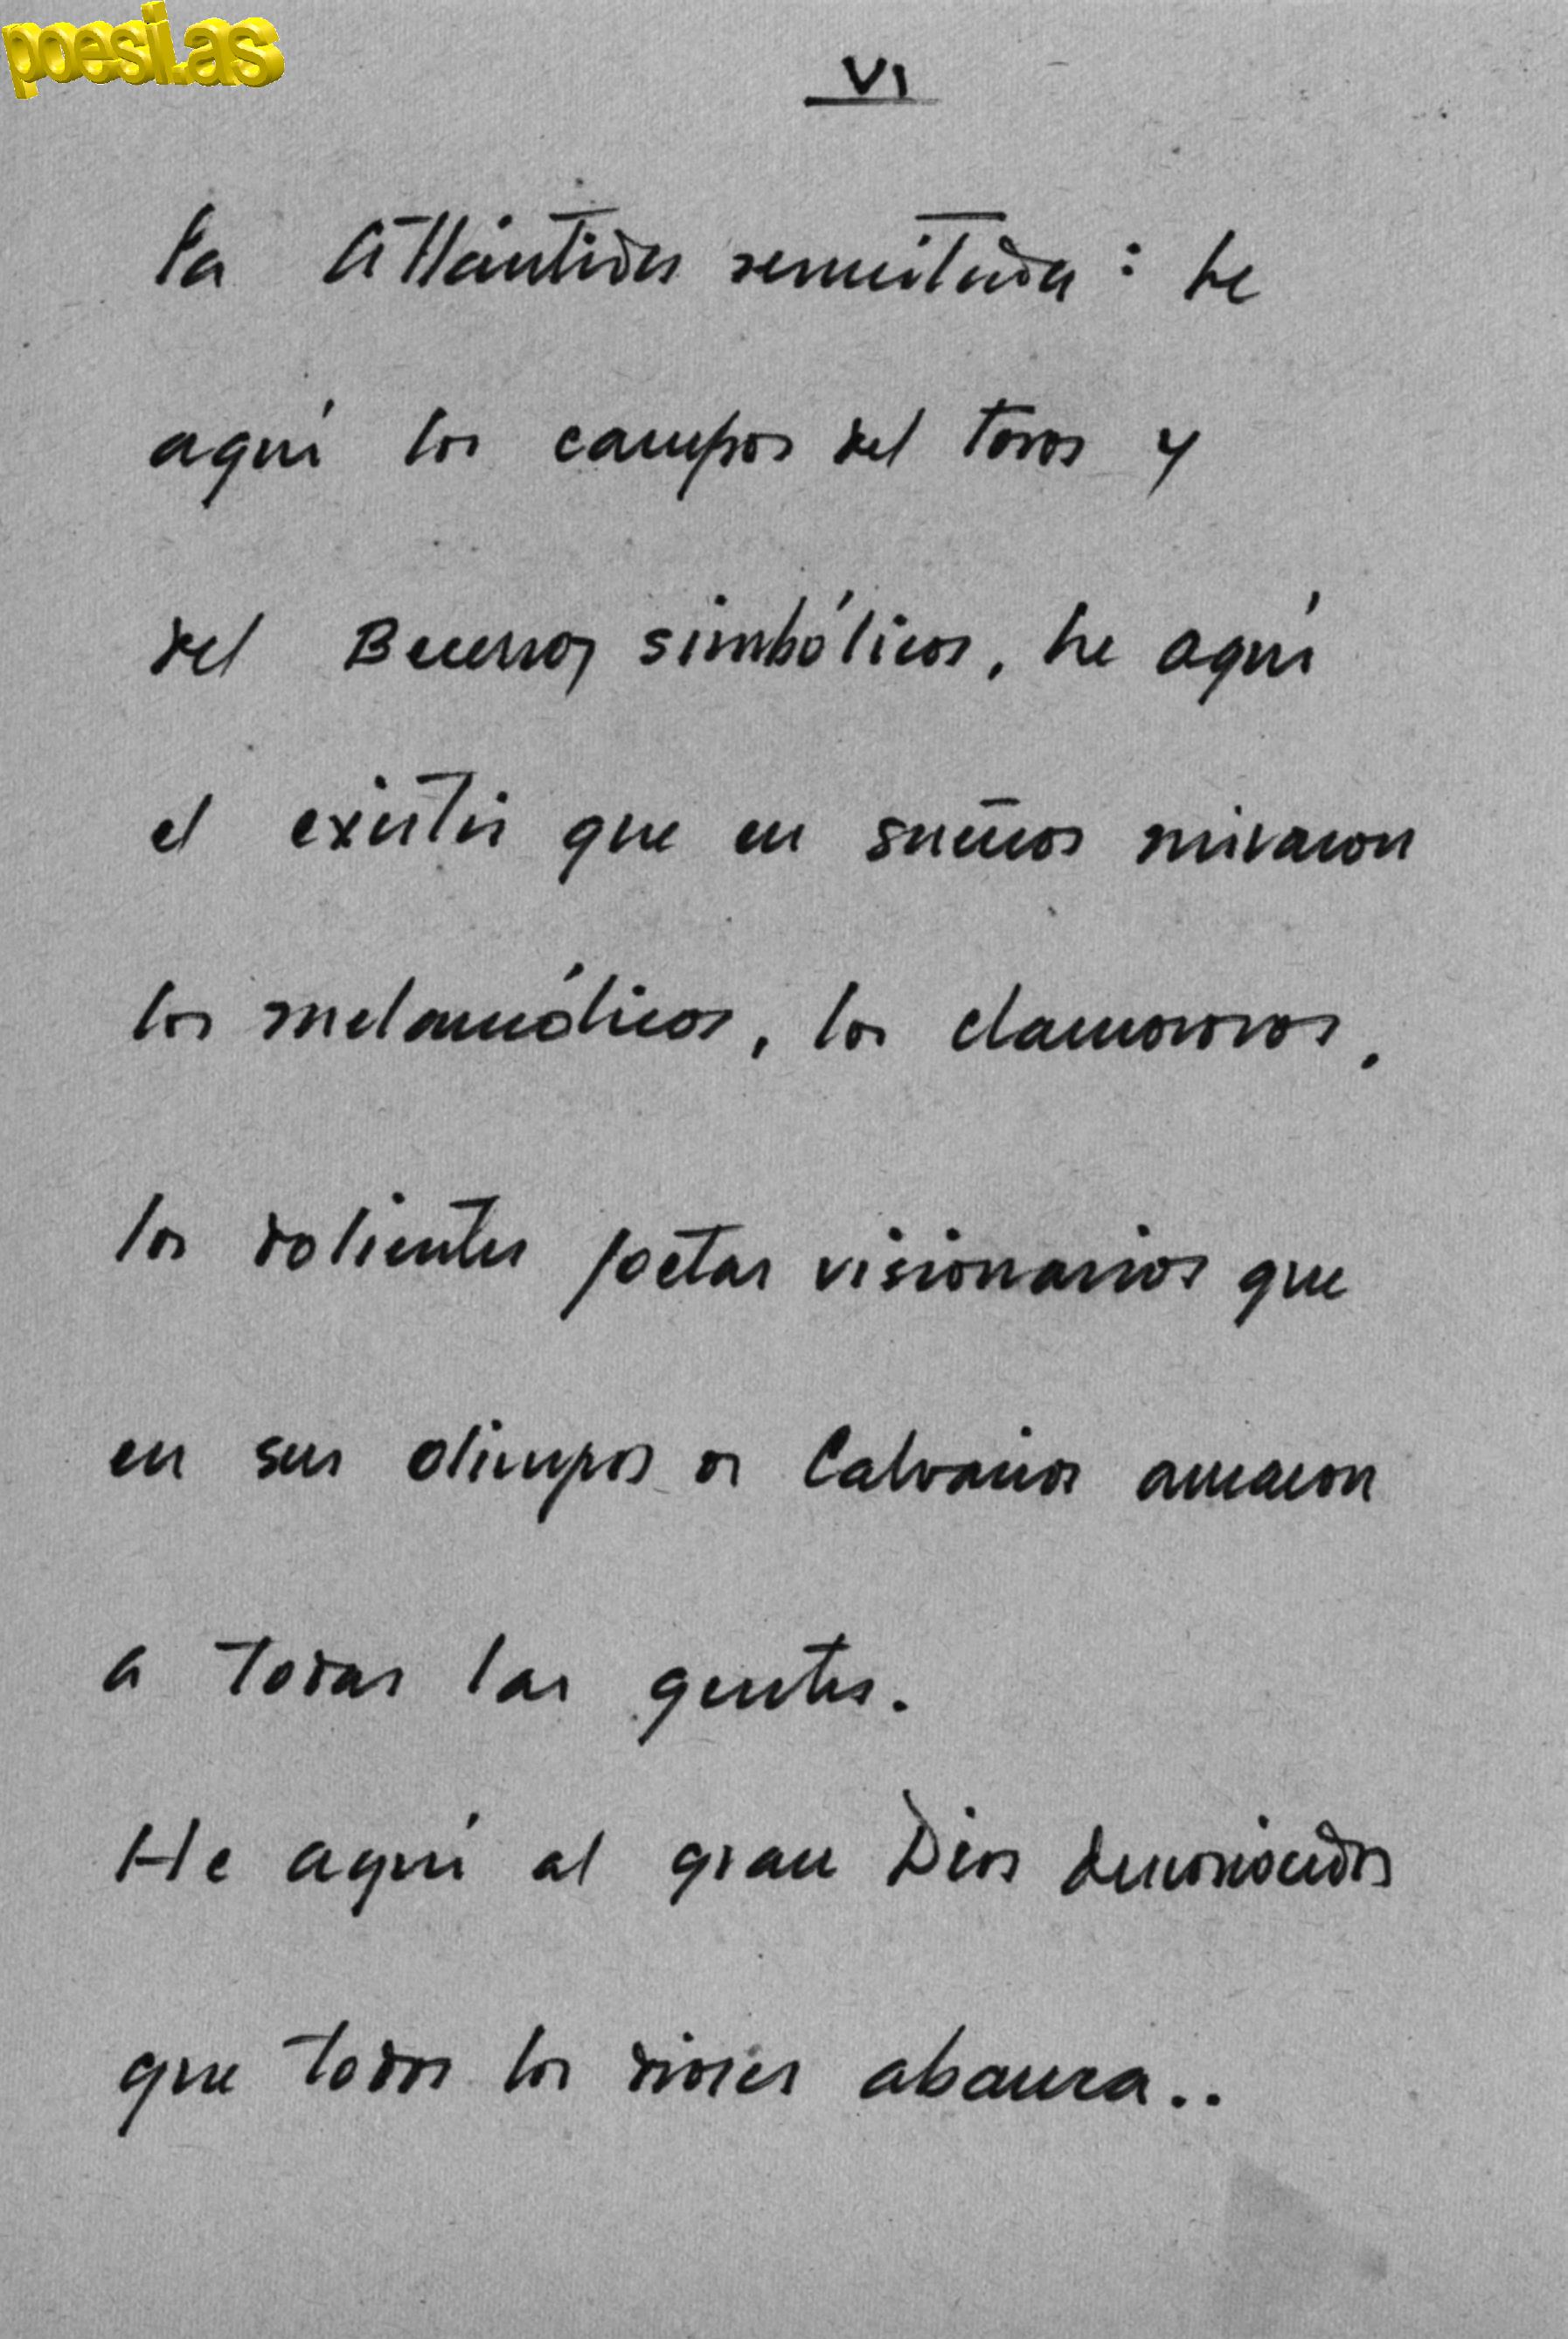 poesi.as
VI
La Atlántida resucitada : he
aquí los campos del toro y
del Becerro simbólicos, he aquí
el existir que en sueños miraron
los melancólicos, los clamorosos,
los dolientes poetas visionarios que
en sus olimpos o Calvarios amaron
a todas las gentes.
He aquí al gran Dios desconocido
que todos los dioses abarca..